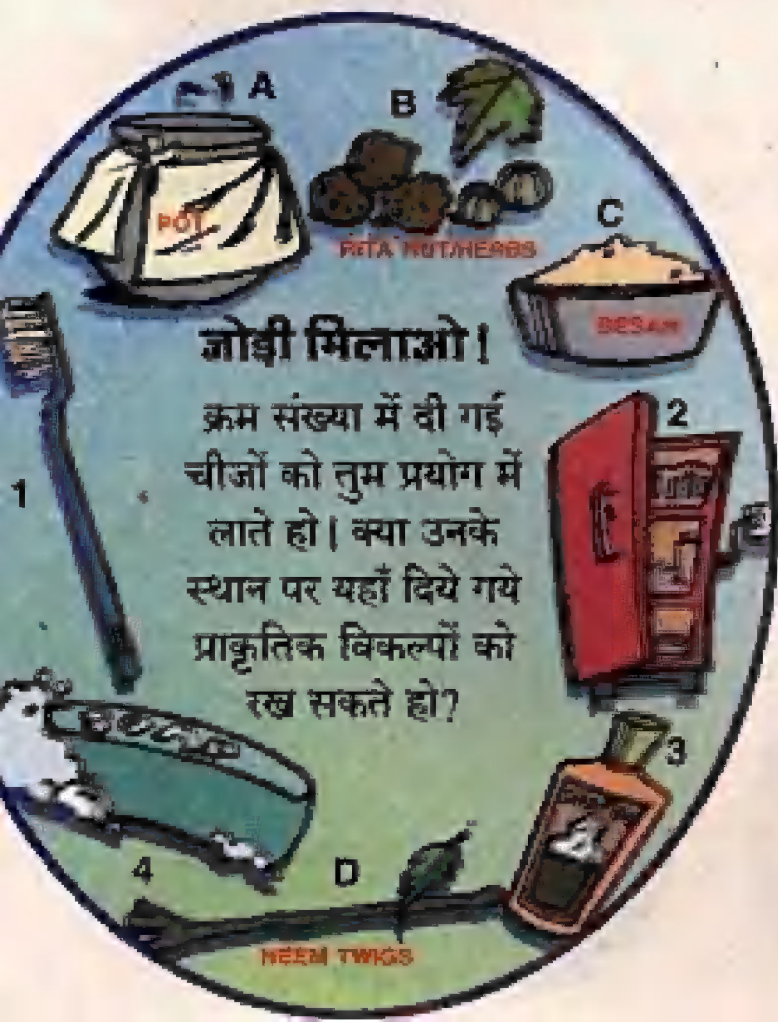 A
B
POT
RITA NUT/HERBS
C
BESAN
जोड़ी मिलाओ!
क्रम संख्या में दी गई
चीजों को तुम प्रयोग में
लाते हो। क्या उनके
स्थान पर यहाँ दिये गये
प्राकृतिक विकल्पों को
रख सकते हो?
1
2
3
4
D
NEEM TWIGS